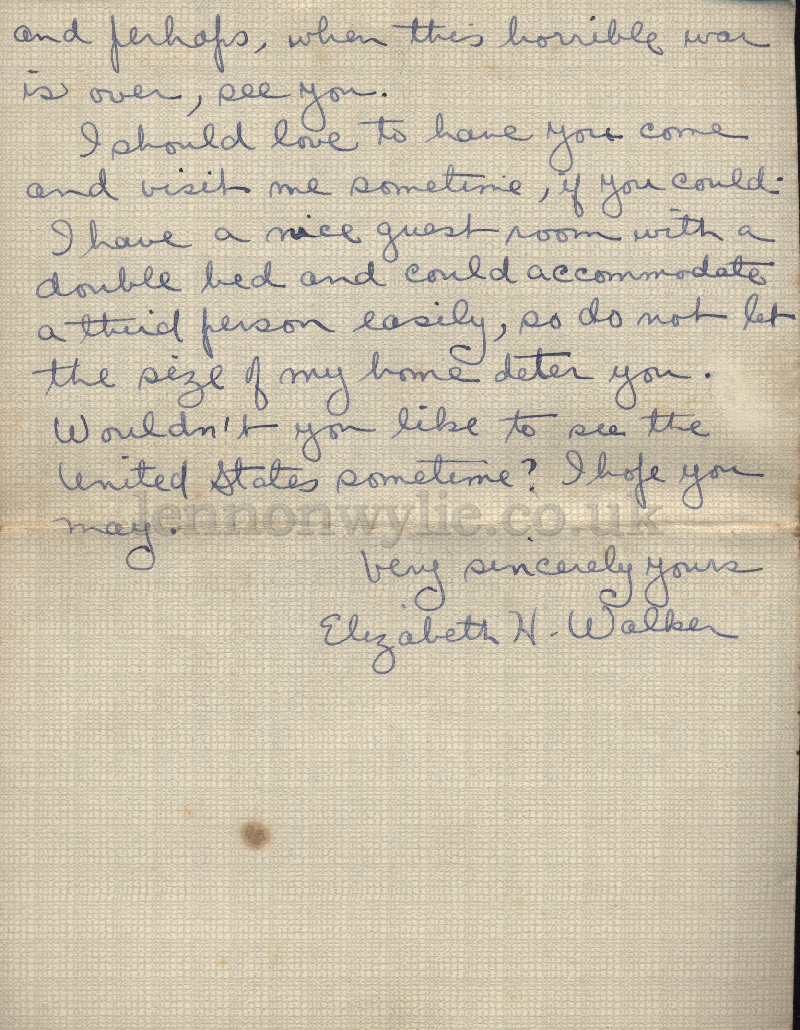 and perhaps, when this horrible war
is over, see you.
I should love to have you come
and visit me sometime, if you could.
I have a nice guest room with a
double bed and could accommodate
a third person easily, so do not let
the size of my home deter you.
Wouldn't you like to see the
United States sometime? I hope you
may.
lennonwylie.co.uk
Very sincerely yours
Elizabeth H. Walker